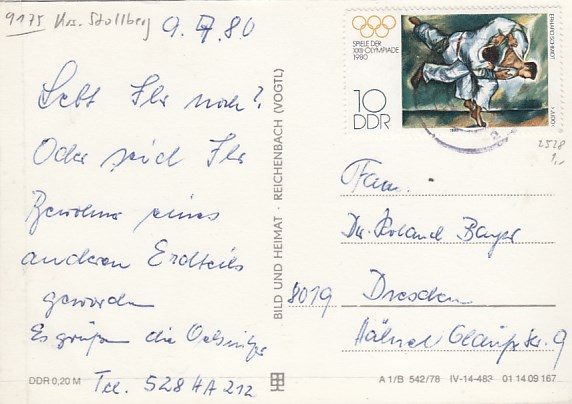 9175 Krs. Stollberg
9.7.80
Lebt Ihr noch?
Oder seid Ihr
Bewohner eines
anderen Erdteils
geworden
Es grüßen die Oelsnitzer
Tel. 528 HA 212
DDR 0,20 M
BILD UND HEIMAT · REICHENBACH (VOGTL)
SPIELE DER
XXII. OLYMPIADE
1980
10
DDR
ERHARD SCHMIDT
»JUDO«
2528
1,-
Fam.
Dr. Roland
8019 Dresden
9
A 1/B 542/78 IV-14-483 01 14 09 167